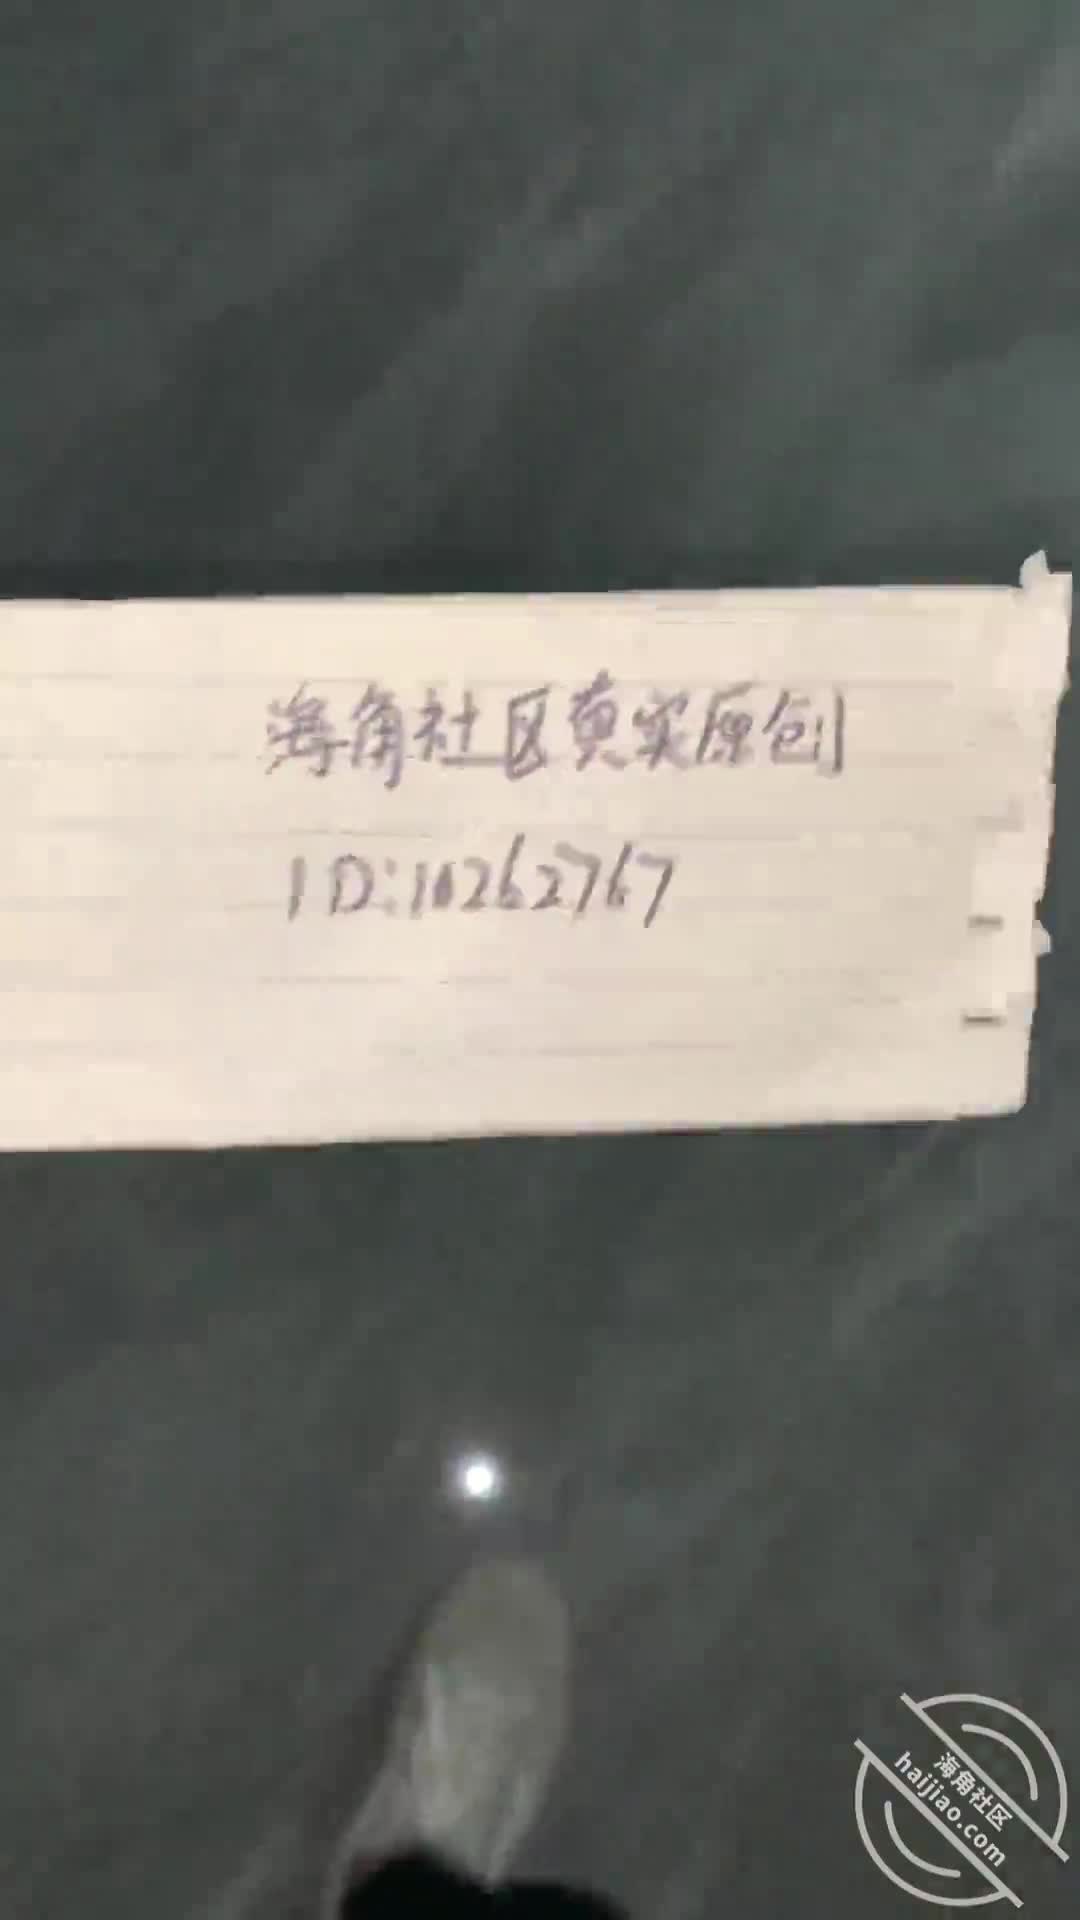 海角社区真实原创
ID:10262767
海角社区
haijiao.com